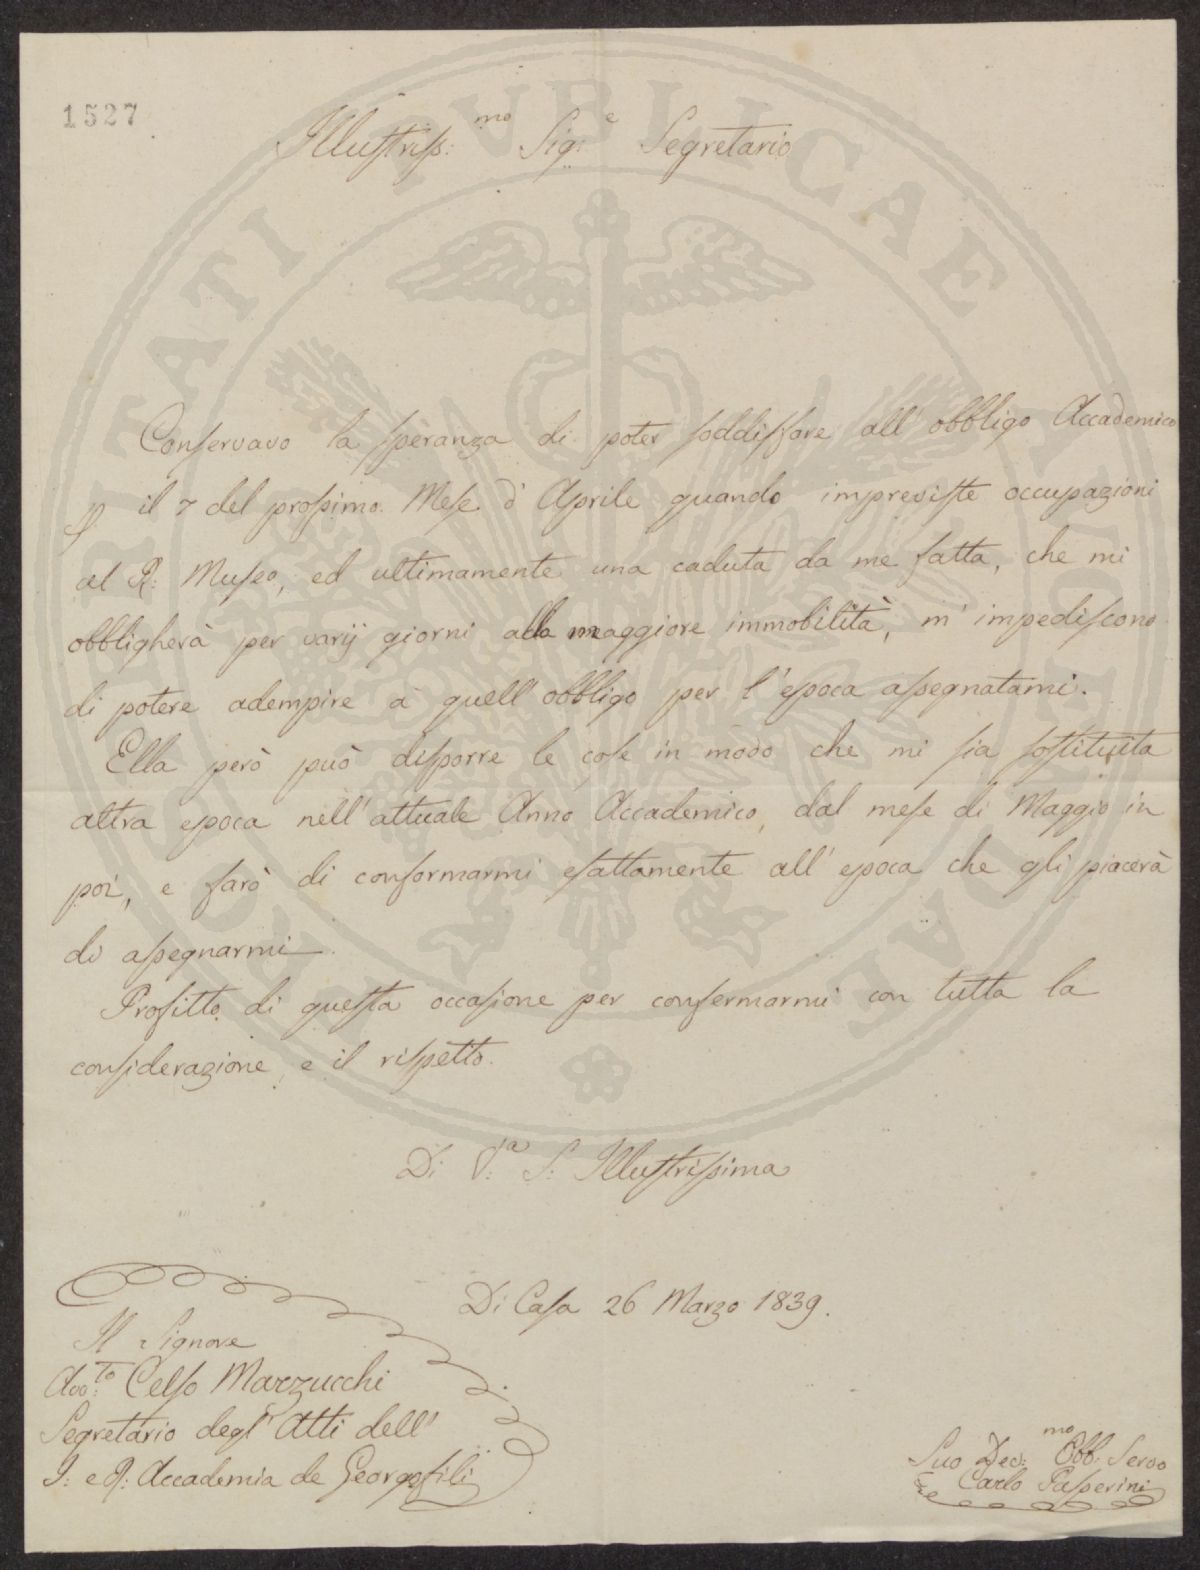 1527
Illustriss:mo Sig:e Segretario
Conservavo la speranza di poter soddisfare all' obbligo Accademico
p il 7 del prossimo Mese d' Aprile quando impreviste occupazioni
al R: Museo, ed ultimamente una caduta da me fatta, che mi
obbligherà per varij giorni alla maggiore immobilità, m' impediscono
di potere adempire a quell' obbligo per l' epoca assegnatami.
Ella però può disporre le cose in modo che mi sia sostituita
altra epoca nell' attuale Anno Accademico, dal mese di Maggio in
poi, e farò di conformarmi esattamente all' epoca che gli piacerà
di assegnarmi.
Profitto di questa occasione per confermarmi con tutta la
considerazione, e il rispetto.
Di V:a S: Illustrissima
Di Casa 26 Marzo 1839.
Il Signore
Avv:to Celso Marzucchi
Segretario degl' Atti dell'
I: e R: Accademia de Georgofili
Suo Dev: Obb:mo Servo
Carlo Passerini
PROSPERITATI PVBLICAE AVGENDAE